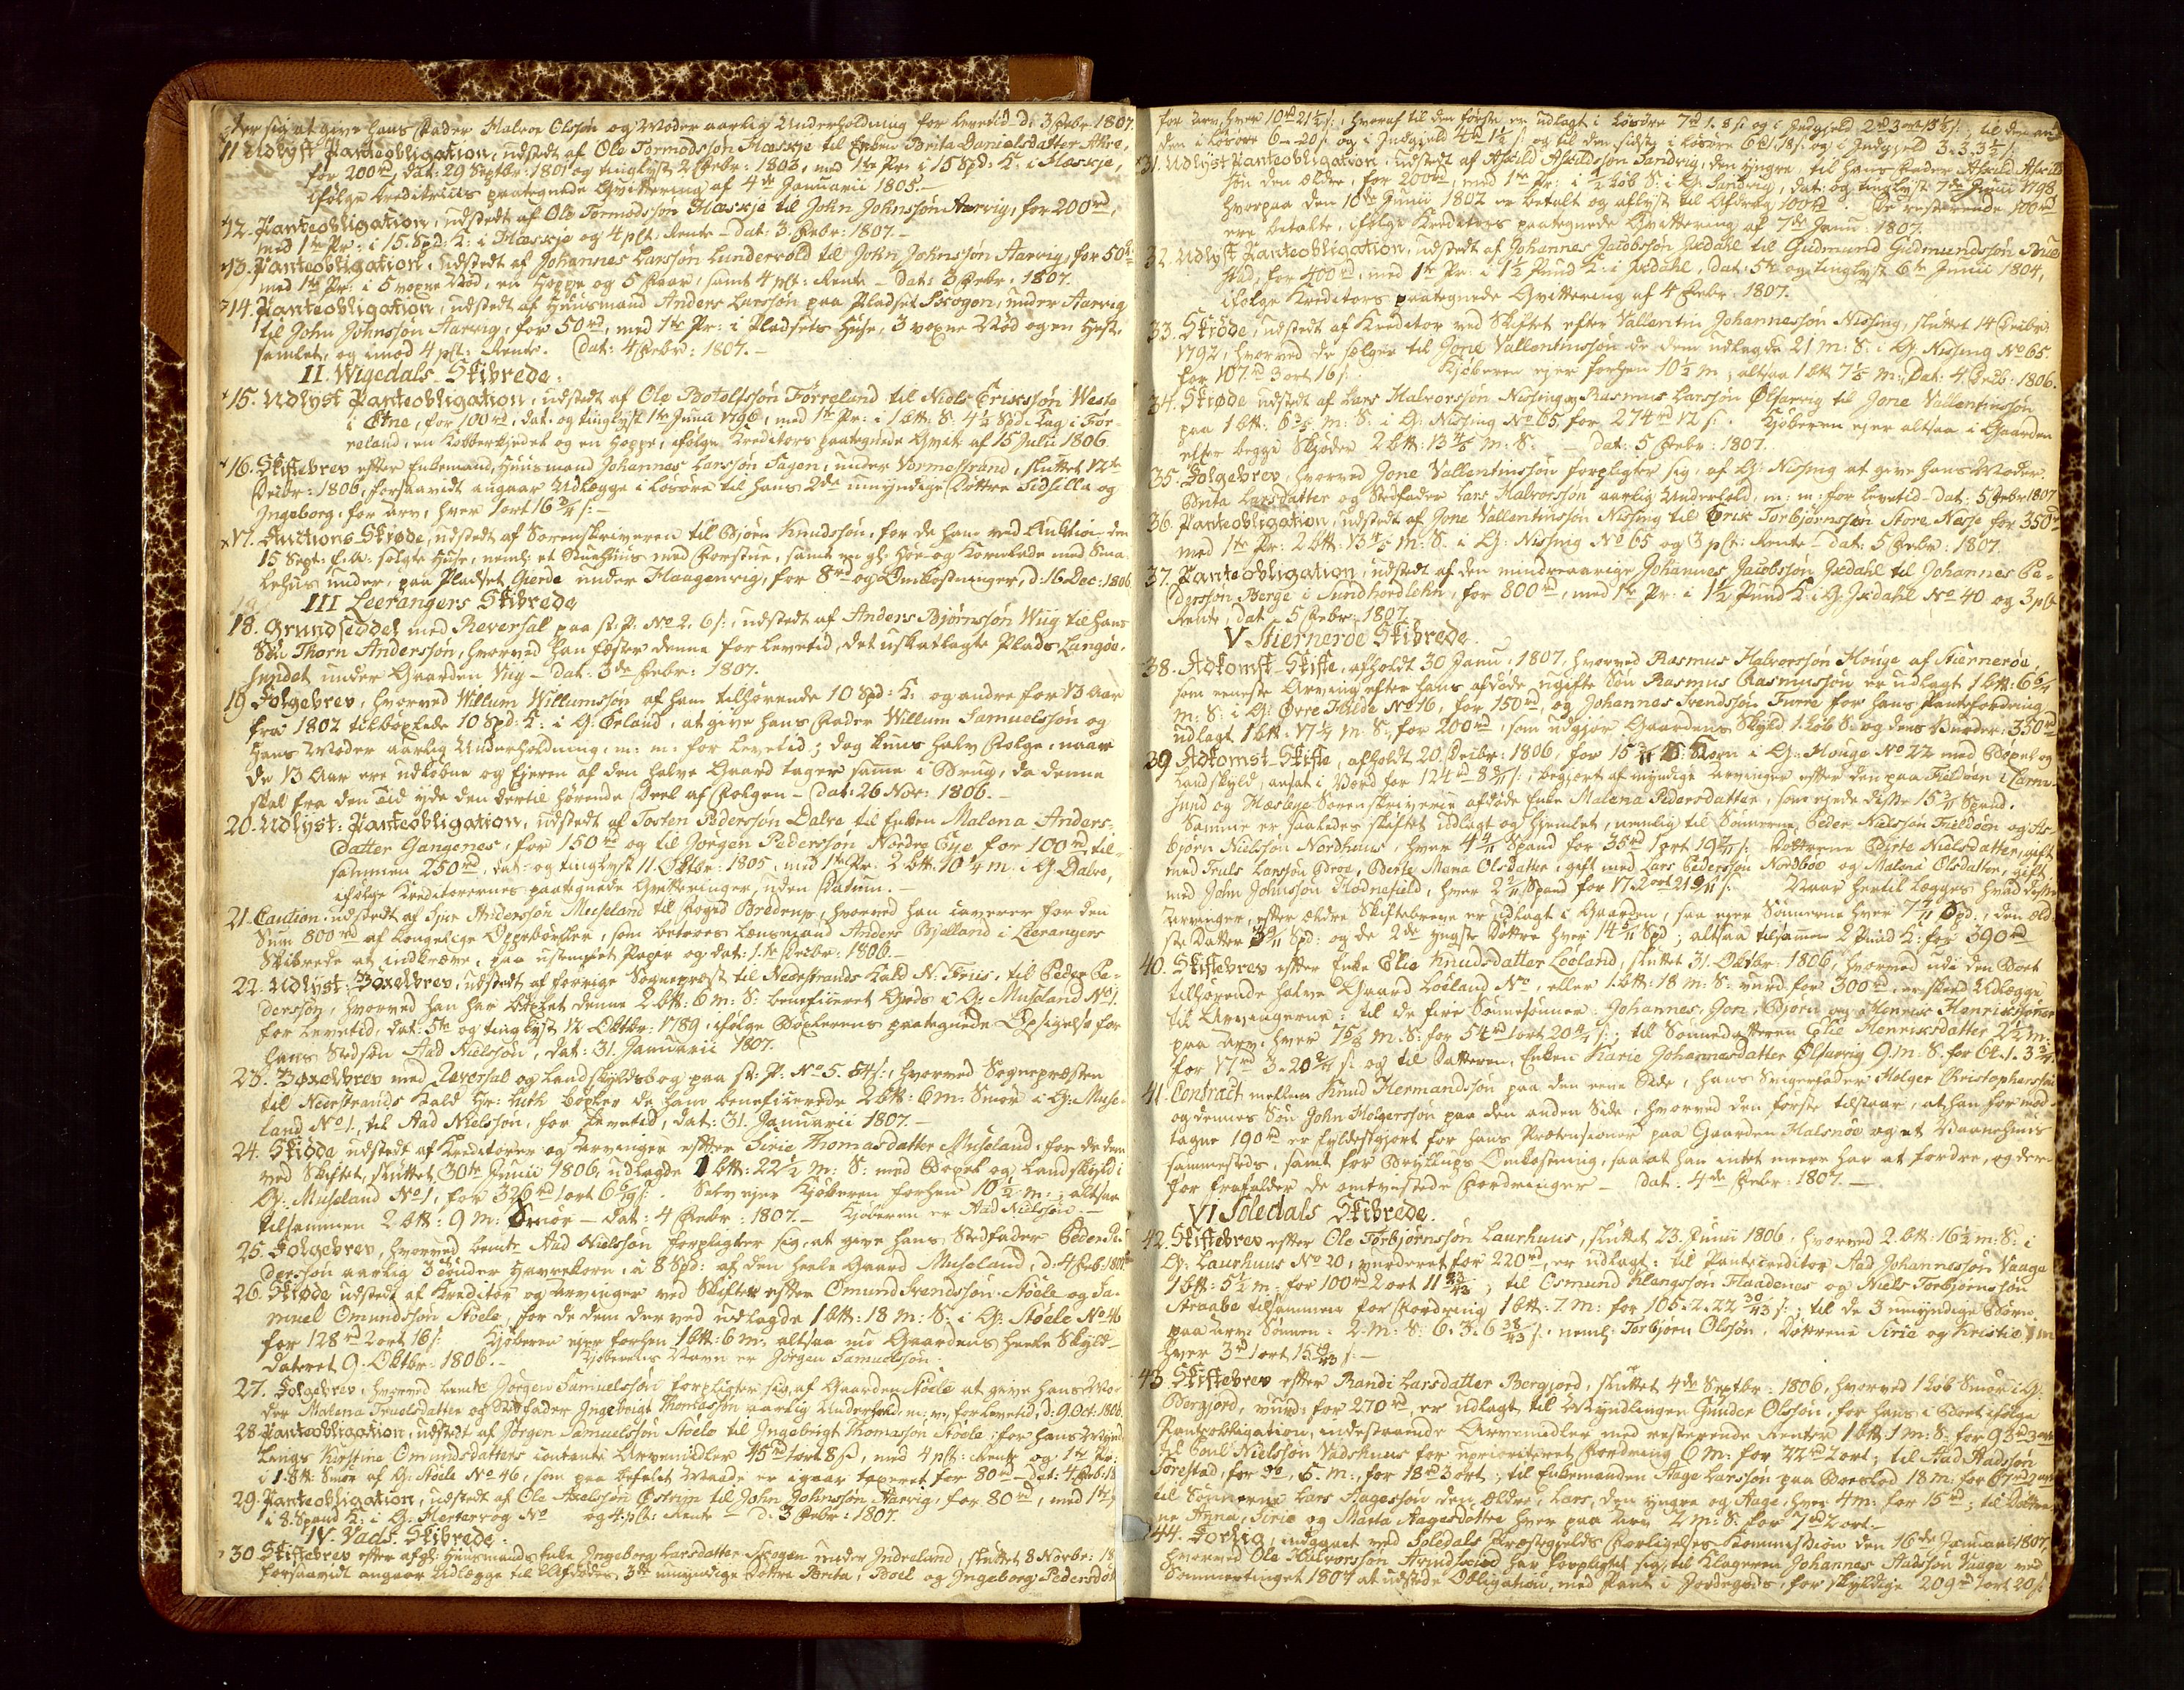 ter sig at give hans Fader Halvor Olssøn og Moder aarlig Underholdning for Levetid D: 3 Febr: 1807.
11 Udlyst Panteobligation, udstedt af Ole Tormodssøn Hæskje til Enken Brita Danielsdatter Akre,
for 200 rd, dat: 29 Septbr: 1801 og tinglyst 2 Febr: 1803, med 1te Pr: i 15 Spd: K: i Hæskje,
ifølge Creditricis paategnede Qvittering af 4de Januarii 1805.-
12. Panteobligation, udstedt af Ole Tormodssøn Hæskje til John Johnssøn Aarvig, for 200 rd,
med 1te Pr: i 15 Spd: K: i Hæskje og 4 pCt: Rente - Dat: 3. Febr: 1807.-
13. Panteobligation, udstedt af Johannes Larssøn Lundervold til John Johnssøn Aarvig, for 50 rd
med 1te Pr: i 5 voxne Nød, en Hoppe og 5 Faar, samt 4 pCt: Rente - Dat: 3 Febr: 1807.
14. Panteobligation, udstedt af Huusmand Anders Larssøn paa Pladset Skogen, under Aarvig
til John Johnssøn Aarvig, for 50 rd, med 1te Pr: i Pladsets Huse, 3 voxne Nød og en Hest
samlet, og imod 4 pCt: Rente. Dat: 4 Febr: 1807.-
II. Wigedals Skibrede:
15. Udlyst Panteobligation, udstedt af Ole Botolfssøn Førreland til Niels Erikssøn Weste
i Etne, for 100 rd, dat: og tinglyst 1te Junii 1796, med 1te Pr: i 1 btt: S: 4½ Spd: Tag i Før-
reland, en Kobberkjedel og en Hoppe, ifølge Kreditors paategnede Qvit: af 15 Julii 1806.
16. Skiftebrev efter Enkemand, Huusmand Johannes Larssøn Sagen, under Vormestrand, sluttet 12te
Decbr: 1806, forsaavidt angaar Udlægge i Løsøre til hans 2de umyndige Døttre Sidsilla og
Ingeborg, for Arv, hver 1 ort 16¾ s:-
17. Auctions-Skiøde, udstedt af Sorenskriveren til Bjørn Knudssøn, for de ham ved Auktion den
15 Sept: f: A: solgte Huse, neml: et Stuehuus med Forstue, samt en gl: Høe- og Kornlade med Sma-
lehus under, paa Pladset Gjerde under Haagenvig, for 8 rd og Omkostninger, d: 16 Dec: 1806
III Leerangers Skibrede
18. Grundseddel med Reversal paa st: P: No 2. 6 s:, udstedt af Anders Bjørnssøn Wiig til hans
Søn Thorn Anderssøn, hvorved han fæster denne for Levetid, det uskatlagte Plads Langøe-
sundet under Gaarden Viig - Dat: 3de Febr: 1807.
19 Folgebrev, hvorved Willum Willumssøn af ham tilhørende 10 Spd: K: og andre for 13 Aar
fra 1802 tilbøxlede 10 Spd: K: i G: Øeland, at give hans Fader Willum Samuelssøn og
Hans Moder aarlig Underholdning, m: m: for Levetid; dog kuns halv Folge, naar
de 13 Aar ere udløbne og Ejeren af den halve Gaard tager samme i Brug, da denne
skal fra den Tid yde den dertil hørende Deel af Folgen - Dat: 26 Nov: 1806.-
20. Udlyst: Panteobligation, udstedt af Torsten Pederssøn Dalve til Enken Malena Anders-
datter Gangenes, for 150 rd og til Jørgen Pederssøn Nordre Eye for 100 rd, til-
sammen 250 rd, dat: og tinglyst 11. Oktbr: 1805, med 1te Pr: 2 btt: 10¼ m: i G: Dalve,
ifølge Kreditorernes paategnede Qvitteringer uden Datum.-
21. Caution, udstedt af Iver Anderssøn Museland til Foged Bredrup, hvorved han caverer for den
Sum 800 rd af Kongelige Oppebørseler, som betroes Lænsmand Anders Bjelland i Leerangers
Skibrede at indkræve, paa ustemplet Papir og dat: 1te Decbr: 1806.-
22. Udlyst: Bøxelbrev, udstedt af forrige Sognepræst til Nedestrands Kald N. Friis, til Peder Pe-
derssøn, hvorved han har bøxlet denne 2 btt: 6 m: S: beneficeret Gods i G: Museland No 1.
for Levetid, dat: 5te og tinglyst 12 Oktbr: 1789, ifølge Bøxlerens paategnede Opsigelse for
hans Stedsøn Aad Nielssøn, dat: 31. Januarii 1807.
23. Bøxelbrev med Reversal og Landskyldsbog paa st: P: No 5. 54 s:, hvorved Sognepræsten
til Nedestrands Kald Hr: Luth bøxler de ham beneficerede 2 btt: 6 m: Smør i G: Muse-
land No 1. til Aad Nielssøn, for Levetid, dat: 31. Januarii 1807.-
24. Skiøde udstedt af Kreditorer og Arvinger efter Sirie Thomasdatter Museland, for de dem
ved Skiftet, sluttet 30te Junii 1806, udlagde 1 btt: 22½ m: S: med Bøxel og Landskyld i
G: Museland No 1, for 326 rd 1 ort 6 s: Selv ejer Kjøberen forhen 10½ m:, altsaa
tilsammen 2 btt: 9 m: Smør - Dat: 4 Febr: 1807.- Kjøberen er Aad Nielssøn.-
25. Folgebrev, hvorved bemte Aad Nielssøn forpligter sig, at give hans Stedfader Peder Pe-
derssøn aarlig 3 Tønder Havrekorn, à 8 Spd: af den heele Gaard Museland, d: 4 Feb: 1807
26. Skiøde udstedt af Kreditor og Arvinger ved Skiftet efter Omund Svendssøn Støele og Sa-
muel Omundssøn Støele, for de dem derved udlagde 1 btt: 18 m: S: i G: Støele No 46
for 128 rd 2 ort 16 s: Kjøberen ejer forhen 1 btt: 6 m: altsaa nu Gaardens heele Skyld -
dateret 9. Oktbr: 1806.- Kjøberens Navn er Jørgen Samuelssøn.
27. Folgebrev, hvorved bemte Jørgen Samuelssøn forpligter sig, af Gaarden Støele at give hans Mo-
der Malena Truelsdatter og Stiffader Ingebrigt Thomassøn aarlig Underhold: m: v: for Levetid, d: 9. Oct: 1806
28. Panteobligation, udstedt af Jørgen Samuelssøn Støele til Ingebrigt Thomassøn Støele, for hans Mynd-
lings Kirstine Omundsdatters contante Arvemidler 45 rd 1 ort 8 s, med 4 pCt: Rente og 1te Pr:
i 1 btt: Smør af G: Støele No 46, som paa befalet Maade er igaar taxeret for 80 rd - Dat: 4 Feb: 18
29. Panteobligation, udstedt af Ole Axelssøn Østrijm til John Johnssøn Aarvig, for 80 rd, med 1te
i 8. Spand K: i G: Hertervig No og 4 pCt: Rente - D: 3 Febr: 1807.
IV. Vads Skibrede:
30. Skiftebrev efter afgl: Huusmands Enke Ingeborg Larsdatter Skogen under Indreland, sluttet 8 Novbr: 18
forsaavidt angaar Udlægge til Afdødes 3de umyndige Døttre Brita, Boel og Ingeborg Pedersdøt
for Arv, hver 10 rd 21½ s:, hvoraf til den første er udlagt i Løsøre 7 rd 1. 8 s: og i Indgjeld 2 rd 3 ort 13½ s:; til den an-
den i Løsøre 6 - 20 s: og i Indgjeld 4 rd 1½ s: og til den sidste i Løsøre 6 rd 18 s: og i Indgjeld 3. 3. 3½ s:
31. Udlyst Panteobligation, udstedt af Askild Askildssøn Sandvig, den yngre, til hans Fader Askild Askild-
søn den ældre, for 200 rd, med 1te Pr: i ½ Løb S: i G: Sandvig, dat: og tinglyst 7de Junii 1798,
hvorpaa den 10de Junii 1802 er betalt og aflyst til Afdrag 100 rd. De resterende 100 rd
ere betalte, ifølge Kreditors paategnede Qvittering af 7de Janu: 1807.
32 Udlyst Panteobligation, udstedt af Johannes Jacobssøn Jxdahl til Gudmund Gudmundssøn Bue-
stad, for 400 rd, med 1te Pr: i 1½ Pund K: i Jxdahl, dat: 5te og tinglyst 6te Junii 1804,
ifølge Kreditors paategnede Qvittering af 4 Febr: 1807.
33. Skiøde, udstedt af Kreditor ved Skiftet efter Vallentin Johannessøn Nissing, sluttet 14 Decbr:
1792, hvorved de sælger til Jone Vallentinssøn de dem udlagde 21 m: S: i G: Nissing No 65.
for 107 rd 3 ort 16 s: Kjøberen ejer forhen 10½ m, altsaa 1 btt 7½ m: Dat: 4. Decb: 1806.
34. Skiøde udstedt af Lars Halvorssøn Nissing og Rasmus Larssøn Ølfarvig til Jone Vallentinssøn
paa 1 btt: 6⅗ m: S: i G: Nissing No 65, for 274 rd 12 s:. Kjøberen ejer altsaa i Gaarden
efter begge Skjøder 2 btt: 13⅘ m: S: - Dat: 5 Febr: 1807.
35. Folgebrev, hvorved Jone Vallentinssøn forpligter sig, af G: Nissing at give hans Moder
Brita Larsdatter og Stedfader Lars Halvorssøn aarlig Underhold, m: m: for Levetid - dat: 5 Febr 1807
36. Panteobligation, udstedt af Jone Vallentinssøn Nissing til Erik Torbjørnssøn Store Nesse for 350 rd
med 1te Pr: 2 btt: 13⅘ m: S: i G: Nissing No 65 og 3 pCt: Rente - dat: 5 Febr: 1807.
37. Panteobligation, udstedt af den mindreaarige Johannes Jacobssøn Jxdahl til Johannes Pe-
derssøn Berge i Sundhordlehn, for 800 rd, med 1te Pr: i 1½ Pund K: i G: Jxdahl No 40 og 3 pCt
Rente, dat: 5 Febr: 1807
V. Stiernerøe Skibrede.
38. Adkomst-Skifte, afholdt 30 Janu: 1807, hvorved Rasmus Halvorssøn Houge af Stiernerøe,
som eeneste Arving efter hans afdøde ugifte Søn Rasmus Rasmussøn er udlagt 1 btt: 6
m: S: i G: Øvre Hside No 16, for 150 rd, og Johannes Svendssøn Furre for hans Pantefordring
udlagt 1 btt: 17¼ m: S: for 200 rd, som udgjør Gaardens Skyld 1 Løb S: og dens Vurder: 350 rd
39 Adkomst-Skifte, afholdt 20. Decbr: 1806, for 15 3/11 Spd: Korn i G: Houge No 22 med Bøxel og
Landskyld, ansat i Værd for 124 rd 8 s:, begjert af myndige Arvinger efter den paa Fieldøen i Carm-
sund og Hæsbye Sorenskriverie afdøde Enke Malena Pedersdatter, som ejede disse 15 3/11 Spand.
Samme er saaledes skiftet udlagt og hjemlet, nemlig til Sønnerne Peder Nielssøn Fieldøen og As-
bjørn Nielssøn Nordhuus, hver 4 4/11 Spand for 35 rd 1 ort 19 s: Døttrene Børte Nielsdatter, gift
med Truls Larssøn Broe, Børte Maria Olsdatter, gift med Lars Pederssøn Nordboe og Malena Olsdatter, gift
med John Johnssøn Hodnefield, hver 2 2/11 Spand for 17. 2 ort 21 9/11 s: Naar hertil lægges hvad disse
Arvinger, efter ældre Skiftebreve er udlagt i Gaarden, saa ejer Sønnerne hver 7 Spd:, den æld-
ste Datter Spd: og de 2de yngste Døttre hver 14 Spd; altsaa tilsammen 2 Pund K: for 390 rd
40. Skiftebrev efter Enke Elie Knudsdatter Løeland, sluttet 31. Oktbr: 1806, hvorved udi den Boet
tilhørende halve Gaard Løiland No , eller 1 btt: 18 m: S: vurd: for 300 rd, er skeed Udlægge
til Arvingerne: til de fire Sønnesønner Johannes, Jon, Bjørn og Henrik Henrikssønner
paa Arv, hver 7⅕ m: S: for 54 rd 1 ort 20 s:; til Sønnedatteren Elie Henriksdatter 2½ m:
for 17 rd 3. 20 s: og til Datteren, Enken Kiarie Johannasdatter Ølfarvig 9. m: S: for 62. 1. 3
41. Contract mellem Knud Hermandssøn paa den eene Side, hans Svigerfader Holger Christopherssøn
og dennes Søn John Holgerssøn paa den anden Side, hvorved den første tilstaar, at han for mod-
tagne 190 rd er fyldestgjort for hans Prætensioner paa Gaarden Halsnøe og et Vaanehuus
sammesteds, samt for Bryllups Omkostning, saa at han intet meere har at fordre, og der-
for frafalder de omtvistede Fordringer - Dat: 4de Febr: 1807.-
VI Soledals Skibrede.
42. Skiftebrev efter Ole Torbjørnssøn Laurhuus, sluttet 23. Junii 1806. hvorved 2. btt: 16½ m: S: i
G: Laurhuus No 20, vurderet for 220 rd, er udlagt: til Pantecreditor Aad Johannessøn Vaaga
1 btt: 5½ m: for 100 rd 2 ort 11 23/43; til Osmund Klangssøn Flaadenes og Niels Torbjørnssøn
Straabe tilsammen for Fordring 1 btt: 7. m: for 105. 2. 22 30/43 s:; til de 3 umyndige Børn
paa Arv: Sønnen: 2. m: S: 6. 3. 6 38/43 s: neml: Torbjørn Olssøn, Døttrene Sirie og Kristie 1 m
hver 3 rd 1 ort 15 19/43 s:-
43. Skiftebrev efter Randi Larsdatter Bergjord, sluttet 4de Septbr: 1806, hvorved 1 Løb Smør i G:
Bergjord, vurd: for 270 rd, er udlagt til Myndlingen Gunder Olssøn, for hans i Boet ifølge
Panteobligation, indestaaende Arvemidler med resterende Renter 1 btt: 1 m: S: for 93 rd 3 ort
til Poul Nielssøn Vadshuus for uprioriteret Fordring 6 m: for 22 rd 2 ort; til Aad Aadssøn
Førestad, for do, 5 m:, for 18 rd 3 ort; til Enkemanden Aage Larssøn paa Boeslod 18 m: for 67 rd 2 ort
til Sønnerne Lars Aagessøn den Ældre, Lars, den yngre og Aage, hver 4 m: for 15 rd; til Døttre-
ne Anna, Sirie og Marta Aagesdøtre hver paa Arv 2 m: S: for 7 rd 2 ort.-
44. Forlig, indgaaet ved Soledals Præstegjelds Forligelses-Kommission den 16de Januar 1807,
hvorved Ole Halvorssøn Armdseied har forpligtet sig, til Klageren Johannes Aadssøn Vaage ved
Sommertinget 1807 at udstede Obligation, med Pant i Jordegods, for skyldige 209 rd 1 ort 20 s: